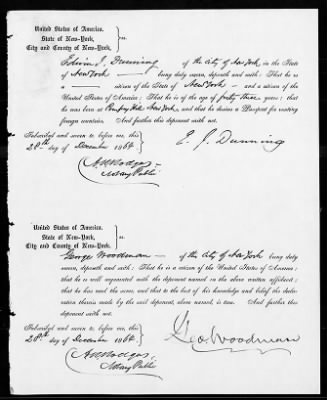 United States of America.
State of New-York,
City and County of New-York, } ss.
Edwin J. Dunning of the City of New York in the State
of New York being duly sworn, deposeth and saith: That he is
a citizen of the State of New York and a citizen of the
United States of America; That he is of the age of forty three years; that
he was born at New York, and that he desires a Passport for visiting
foreign countries. And further this deponent saith not.
Subscribed and sworn to before me, this
28th day of December 1864 }
E. J. Dunning
Notary Public
United States of America.
State of New-York,
City and County of New-York, } ss.
George Woodman of the City of New York being duly
sworn, deposeth and saith: That he is a citizen of the United States of America;
that he is well acquainted with the deponent named in the above written affidavit;
that he has read the same, and that to the best of his knowledge and belief the decla-
ration therein made by the said deponent, above named, is true. And further this
deponent saith not.
Subscribed and sworn to before me, this
28th day of December 1864. }
Geo. Woodman
Notary Public